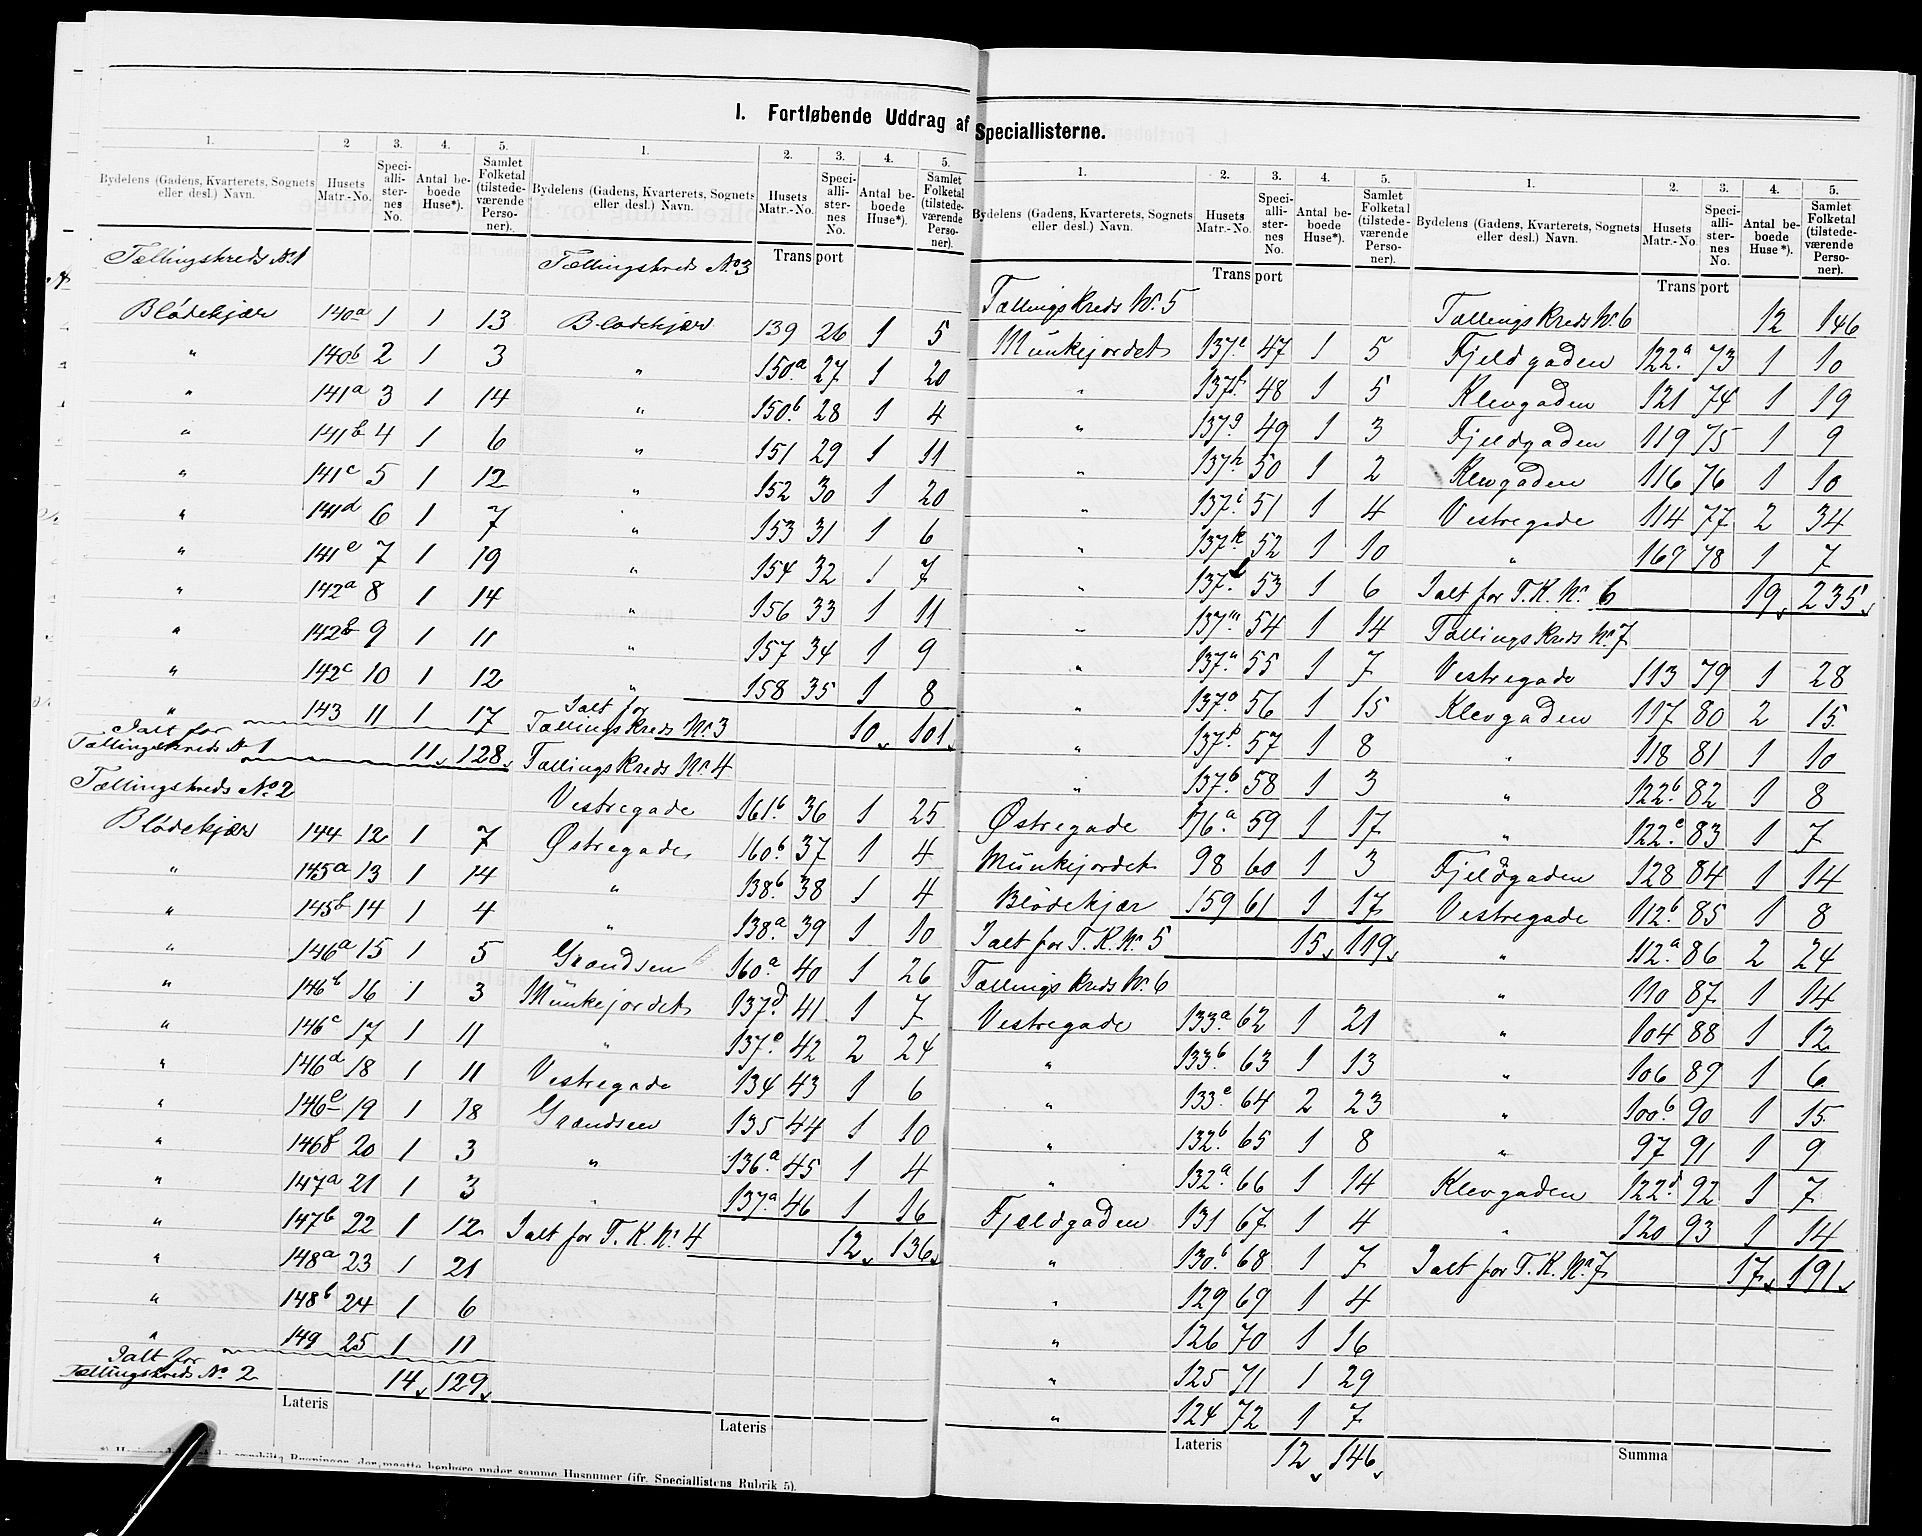 I. Fortløbende Uddrag af Speciallisterne.
1. 2 3. 4. 5.
Bydelens (Gadens, Kvarterets, Sognets eller desl.) Navn. Husets Matr.-No. Speciallisternes No. Antal beboede Huse*). Samlet Folketal (tilstedeværende Personer).
Tællingskreds No. 1
Blødekjær 140a 1 1 13
" 140b 2 1 3
" 141a 3 1 14
" 141b 4 1 6
" 141c 5 1 12
" 141d 6 1 7
" 141e 7 1 19
" 142a 8 1 14
" 142b 9 1 11
" 142c 10 1 12
" 143 11 1 17
Ialt for
Tællingskreds No 1 11 128
Tællingskreds No. 2
Blødekjær 144 12 1 7
" 145a 13 1 14
" 145b 14 1 4
" 146a 15 1 5
" 146b 16 1 3
" 146c 17 1 11
" 146d 18 1 11
" 146e 19 1 18
" 146f 20 1 3
" 147a 21 1 3
" 147b 22 1 12
" 148a 23 1 21
" 148b 24 1 6
" 149 25 1 11
Ialt for
Tællingskreds No. 2 14 129
Lateris
1. 2. 3. 4. 5.
Bydelens (Gadens, Kvarterets, Sognets eller desl.) Navn. Husets Matr.-No. Speciallisternes No. Antal beboede Huse*). Samlet Folketal (tilstedeværende Personer).
Transport
Tællingskreds No. 3
Blødekjær 139 26 1 5
" 150a 27 1 20
" 150b 28 1 4
" 151 29 1 11
" 152 30 1 20
" 153 31 1 6
" 154 32 1 7
" 156 33 1 11
" 157 34 1 9
" 158 35 1 8
Ialt for
Tællingskreds Nr. 3 10 101
Tællingskreds Nr. 4
Vestregade 161b 36 1 25
Østregade 160b 37 1 4
" 138b 38 1 4
" 138a 39 1 10
Grændsen 160a 40 1 26
Munkejordet 137d 41 1 7
" 137c 42 2 24
Vestregade 134 43 1 6
Grændsen 135 44 1 10
" 136a 45 1 4
" 137a 46 1 16
Ialt for T. K. Nr. 4 12 136
Lateris
1. 2. 3. 4. 5.
Bydelens (Gadens, Kvarterets, Sognets eller desl.) Navn. Husets Matr.-No. Speciallisternes No. Antal beboede Huse*). Samlet Folketal (tilstedeværende Personer).
Transport
Tællingskreds Nr. 5
Munkejordet 137e 47 1 5
" 137f 48 1 5
" 137g 49 1 3
" 137h 50 1 2
" 137i 51 1 4
" 137k 52 1 10
" 137l 53 1 6
" 137m 54 1 14
" 137n 55 1 7
" 137o 56 1 15
" 137p 57 1 8
" 137b 58 1 3
Østregade 176a 59 1 17
Munkejordet 98 60 1 3
Blødekjær 159 61 1 17
Ialt for T. K. Nr. 5 15 119
Tællingskreds Nr. 6
Vestregade 133a 62 1 21
" 133b 63 1 13
" 133c 64 2 23
" 132b 65 1 8
" 132a 66 1 14
Fjeldgaden 131 67 1 4
" 130b 68 1 7
" 129 69 1 4
" 126 70 1 16
" 125 71 1 29
" 124 72 1 7
Lateris 12 146
1. 2. 3. 4. 5.
Bydelens (Gadens, Kvarterets, Sognets eller desl.) Navn. Husets Matr.-No. Speciallisternes No. Antal beboede Huse*). Samlet Folketal (tilstedeværende Personer).
Transport
Tællingskreds Nr. 6 12 146
Fjeldgaden 122a 73 1 10
Klevgaden 121 74 1 19
Fjeldgaden 119 75 1 9
Klevgaden 116 76 1 10
Vestregade 114 77 2 34
" 169 78 1 7
Ialt for T. K. Nr. 6 19 235
Tællingskreds Nr. 7
Vestregade 113 79 1 28
Klevgaden 117 80 2 15
" 118 81 1 10
" 122b 82 1 8
" 122c 83 1 7
Fjeldgaden 128 84 1 14
Vestregade 112b 85 1 8
" 112a 86 2 24
" 110 87 1 14
" 104 88 1 12
" 106 89 1 6
" 100b 90 1 15
" 97 91 1 9
Klevgaden 122d 92 1 7
" 120 93 1 14
Ialt for T. K. Nr. 7 17 191
Summa
Bygninger, der maatte henhøre under samme Husnumer (jfr. Speciallistens Rubrik 5).